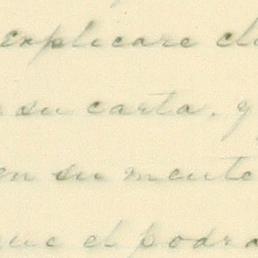 explicare cl
su carta. y
en su mente
que el podra